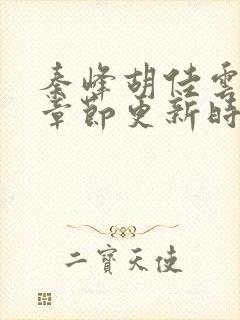 秦峰胡佳雲
章節更新時
二寶天使